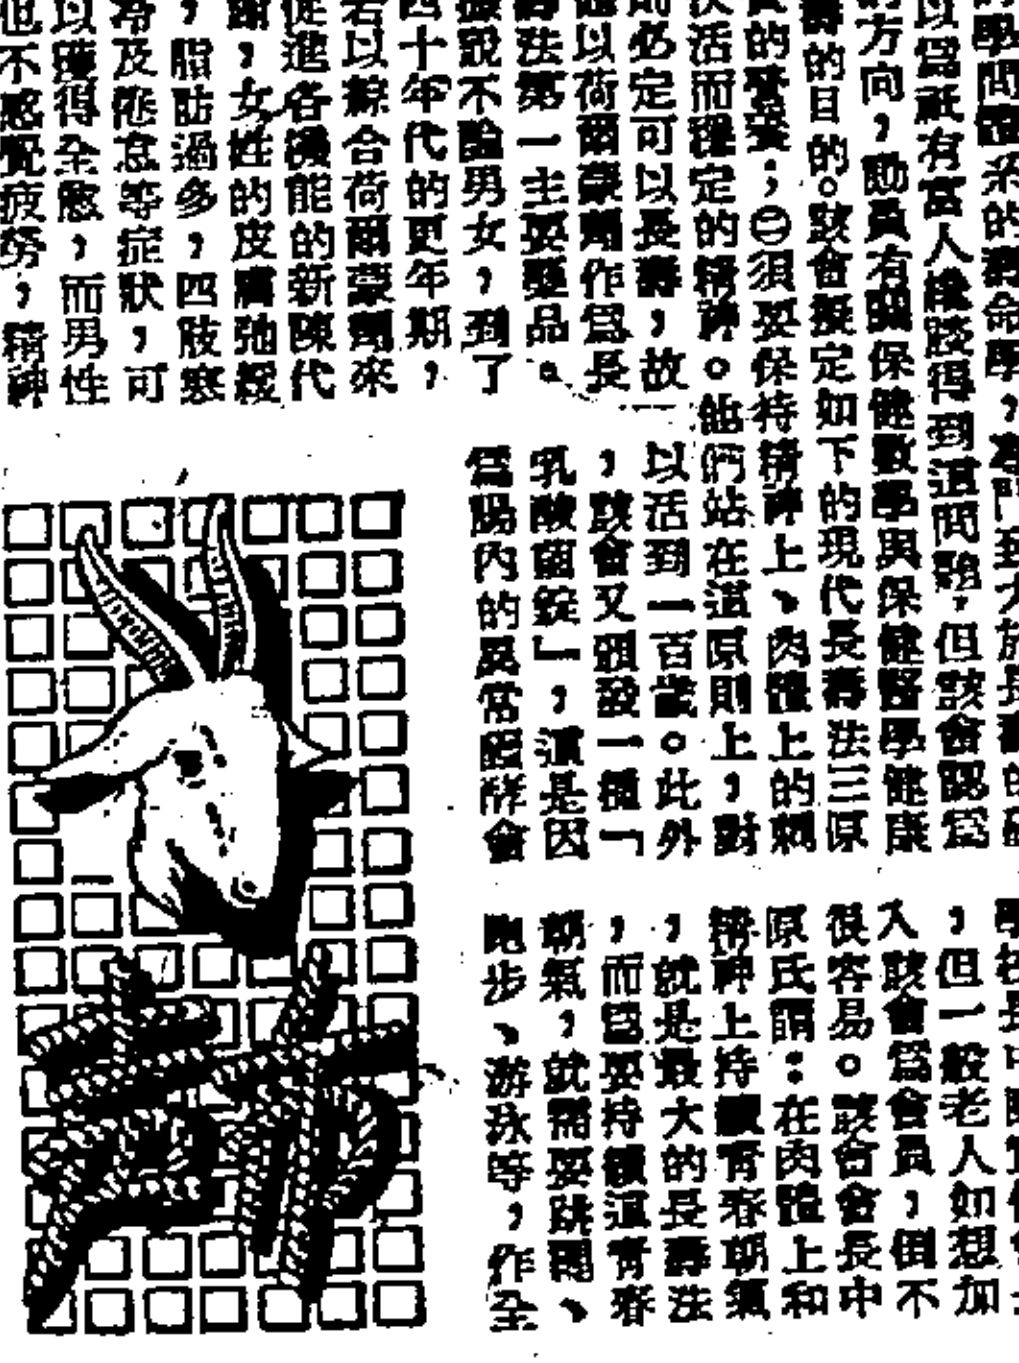 學問體系的壽命學，
以爲祇有富人纔踐得到這問題，但該會認爲
的方向，動員有關保健數學與保健醫學健康
壽的目的。該會擬定如下的現代長壽法三原
的營養；㊁須要保持精神上、肉體上的刺
快活而穩定的精神。他們站在這原則上，對
則必定可以長壽，故
應以荷爾蒙劑作爲長
壽法第一主要藥品。
據說不論男女，到了
四十年代的更年期，
若以綜合荷爾蒙劑來
促進各機能的新陳代
謝，女性的皮膚弛緩
，脂肪過多，四肢寒
冷及倦怠等症狀，可
以獲得全愈，而男性
也不感覺疲勞，精神
以活到一百歲。此外
，該會又頒發一種「
乳酸菌錠」，這是因
爲腸內的異常醱酵會
，但一般老人如想加
入該會爲會員，倒不
很容易。該會會長中
原氏謂：在肉體上和
精神上持續青春朝氣
，就是最大的長壽法
，而爲要持續這青春
朝氣，就需要跳繩、
跑步、游泳等，作全